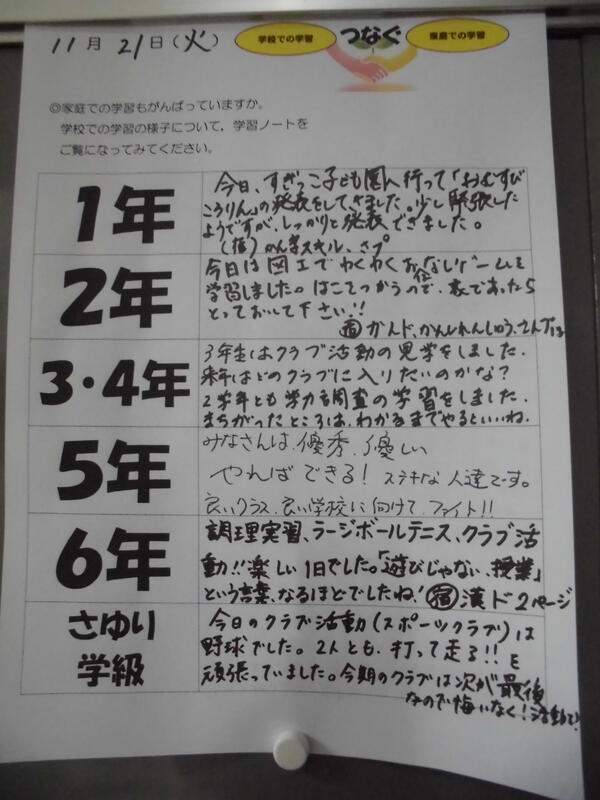 11月21日(火)
学校での学習
つなぐ
家庭での学習
◎家庭での学習もがんばっていますか。
学校での学習の様子について，学習ノートを
ご覧になってみてください。
1年
今日、すぎっこ子ども園へ行って「おむすび
ころりん」の発表をしてきました。少し緊張した
ようですが、しっかりと発表できました。
(宿)かん字スキル、さプ
2年
今日は図工でわくわくおなしゲームを
学習しました。はこをつかうので、家であったら
とっておいて下さい!!
宿 かんド、かんじれんしゅう、さんプは
3・4年
3年生はクラブ活動の見学をしました。
来年はどのクラブに入りたいのかな?
2学年とも学力調査の学習をしました。
まちがったところは、わかるまでやるといいね。
5年
みなさんは、優秀、優しい
やればできる! ステキな人達です。
良いクラス、良い学校に向けて ファイト!!
6年
調理実習、ラージボールテニス、クラブ活
動!!楽しい1日でした。「遊びじゃない、授業」
という言葉、なるほどでしたね! 宿 漢ド2ページ
さゆり
学級
今日のクラブ活動(スポーツクラブ)は
野球でした。2人とも、打って走る!!を
頑張っていました。今期のクラブは次が最後
なので悔いなく!活動で!